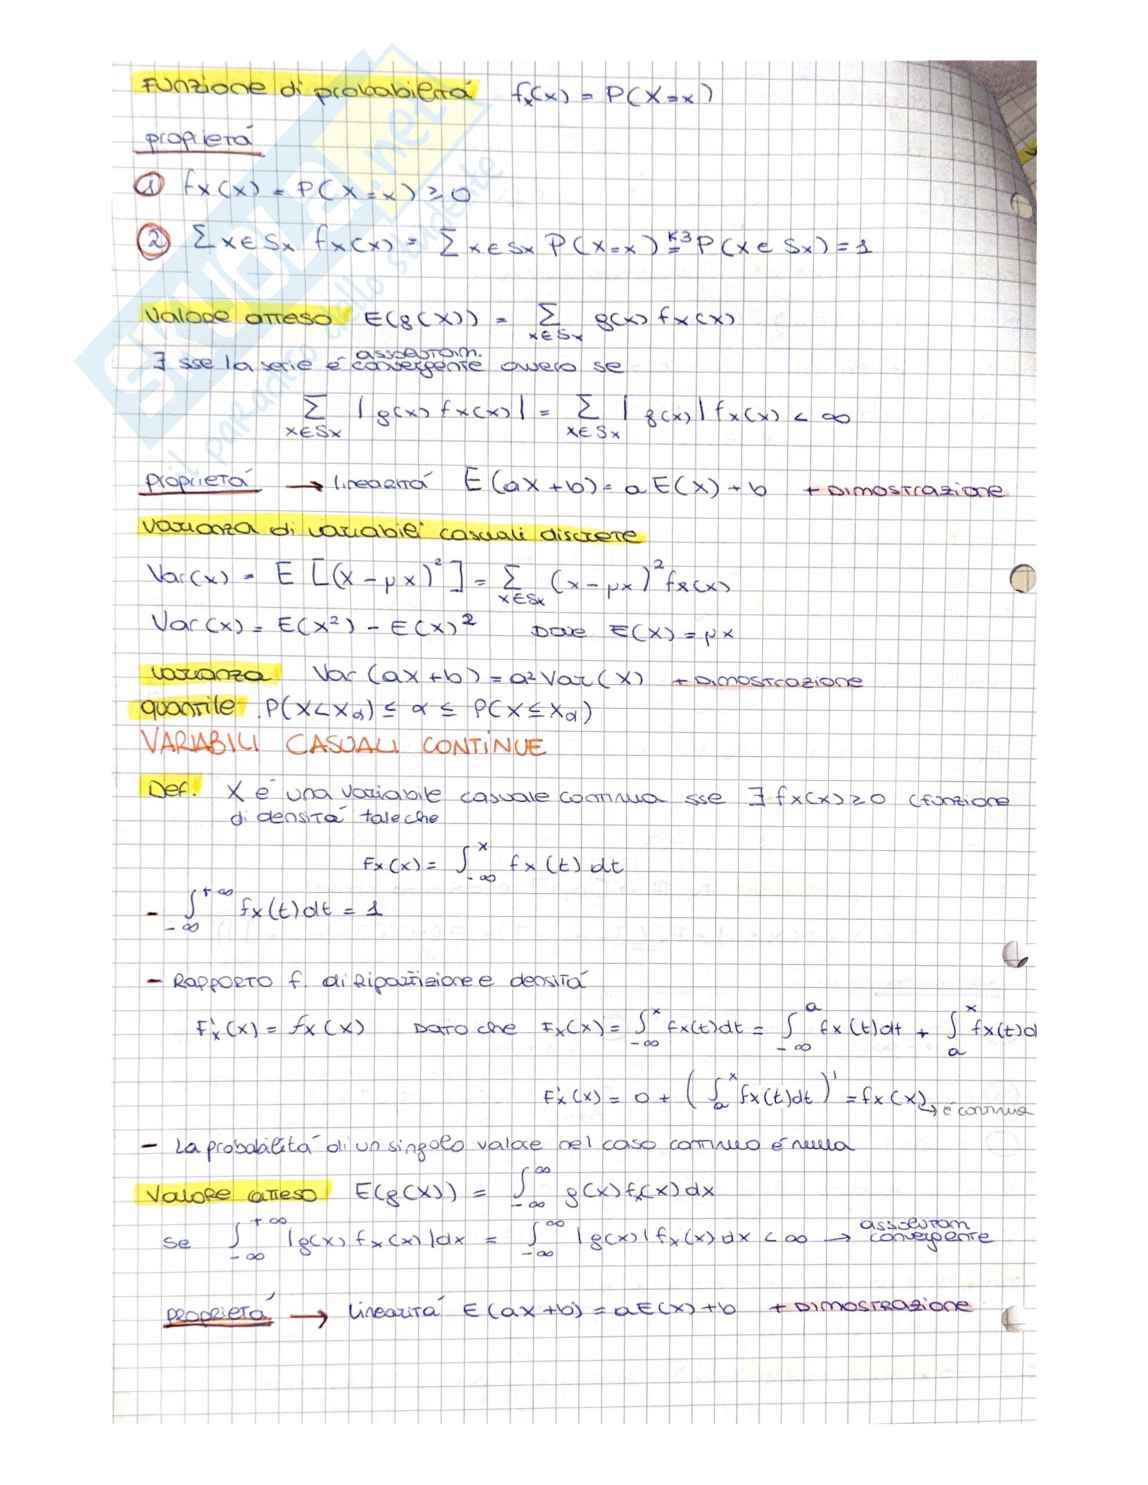 Funzione di probabilità fx(x) = P(X=x)
proprietà
① fx(x) = P(X=x) ≥ 0
② Σ x∈Sx fx(x) = Σ x∈Sx P(X=x) =^K3 P(X∈Sx) = 1
Valore atteso E(g(X)) = Σ x∈Sx g(x) fx(x)
∃ sse la serie è assolutam. convergente ovvero se
Σ x∈Sx |g(x) fx(x)| = Σ x∈Sx |g(x)| fx(x) < ∞
proprietà → linearità E(aX+b) = aE(X)+b + DIMOSTRAZIONE
varianza di variabili casuali discrete
Var(x) = E[(X-μx)²] = Σ x∈Sx (x-μx)² fx(x)
Var(x) = E(X²) - E(X)² DOVE E(X) = μx
varianza Var(aX+b) = a² Var(X) + DIMOSTRAZIONE
quantile P(X<Xα) ≤ α ≤ P(X≤Xα)
VARIABILI CASUALI CONTINUE
Def. X è una variabile casuale continua sse ∃ fx(x) ≥ 0 (funzione
di densità tale che
Fx(x) = ∫_-∞^x fx(t) dt
- ∫_-∞^+∞ fx(t) dt = 1
- RAPPORTO f. di Ripartizione e densità
F'x(x) = fx(x) DATO che Fx(x) = ∫_-∞^x fx(t)dt = ∫_-∞^a fx(t)dt + ∫_a^x fx(t)d
F'x(x) = 0 + (∫_a^x fx(t)dt)' = fx(x) → è continua
- La probabilità di un singolo valore nel caso continuo è nulla
Valore atteso E(g(X)) = ∫_-∞^∞ g(x) fx(x) dx
se ∫_-∞^+∞ |g(x) fx(x)|dx = ∫_-∞^∞ |g(x)| fx(x) dx < ∞ → assolutam convergente
proprietà → linearità E(aX+b) = aE(X)+b + DIMOSTRAZIONE
SKUOLA.net
il paradiso dello studente